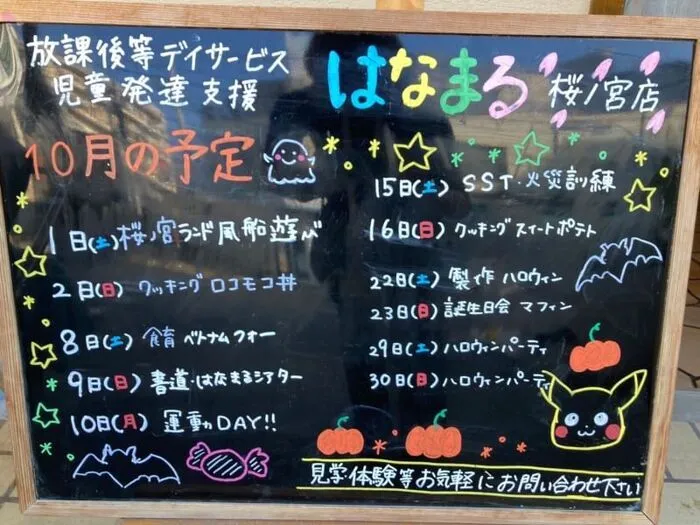 放課後等デイサービス
児童発達支援
はなまる 桜ノ宮店
10月の予定
1日(土)桜ノ宮ランド風船遊び
2日(日) クッキングロコモコ丼
8日(土) 食育 ベトナムフォー
9日(日) 書道・はなまるシアター
10日(月) 運動カDAY!!
15日(土) SST・火災訓練
16日(日) クッキングスイートポテト
22日(土) 製作 ハロウィン
23日(日) 誕生日会 マフィン
29日(土) ハロウィンパーティ
30日(日) ハロウィンパーティ
見学・体験等お気軽にお問い合わせ下さい